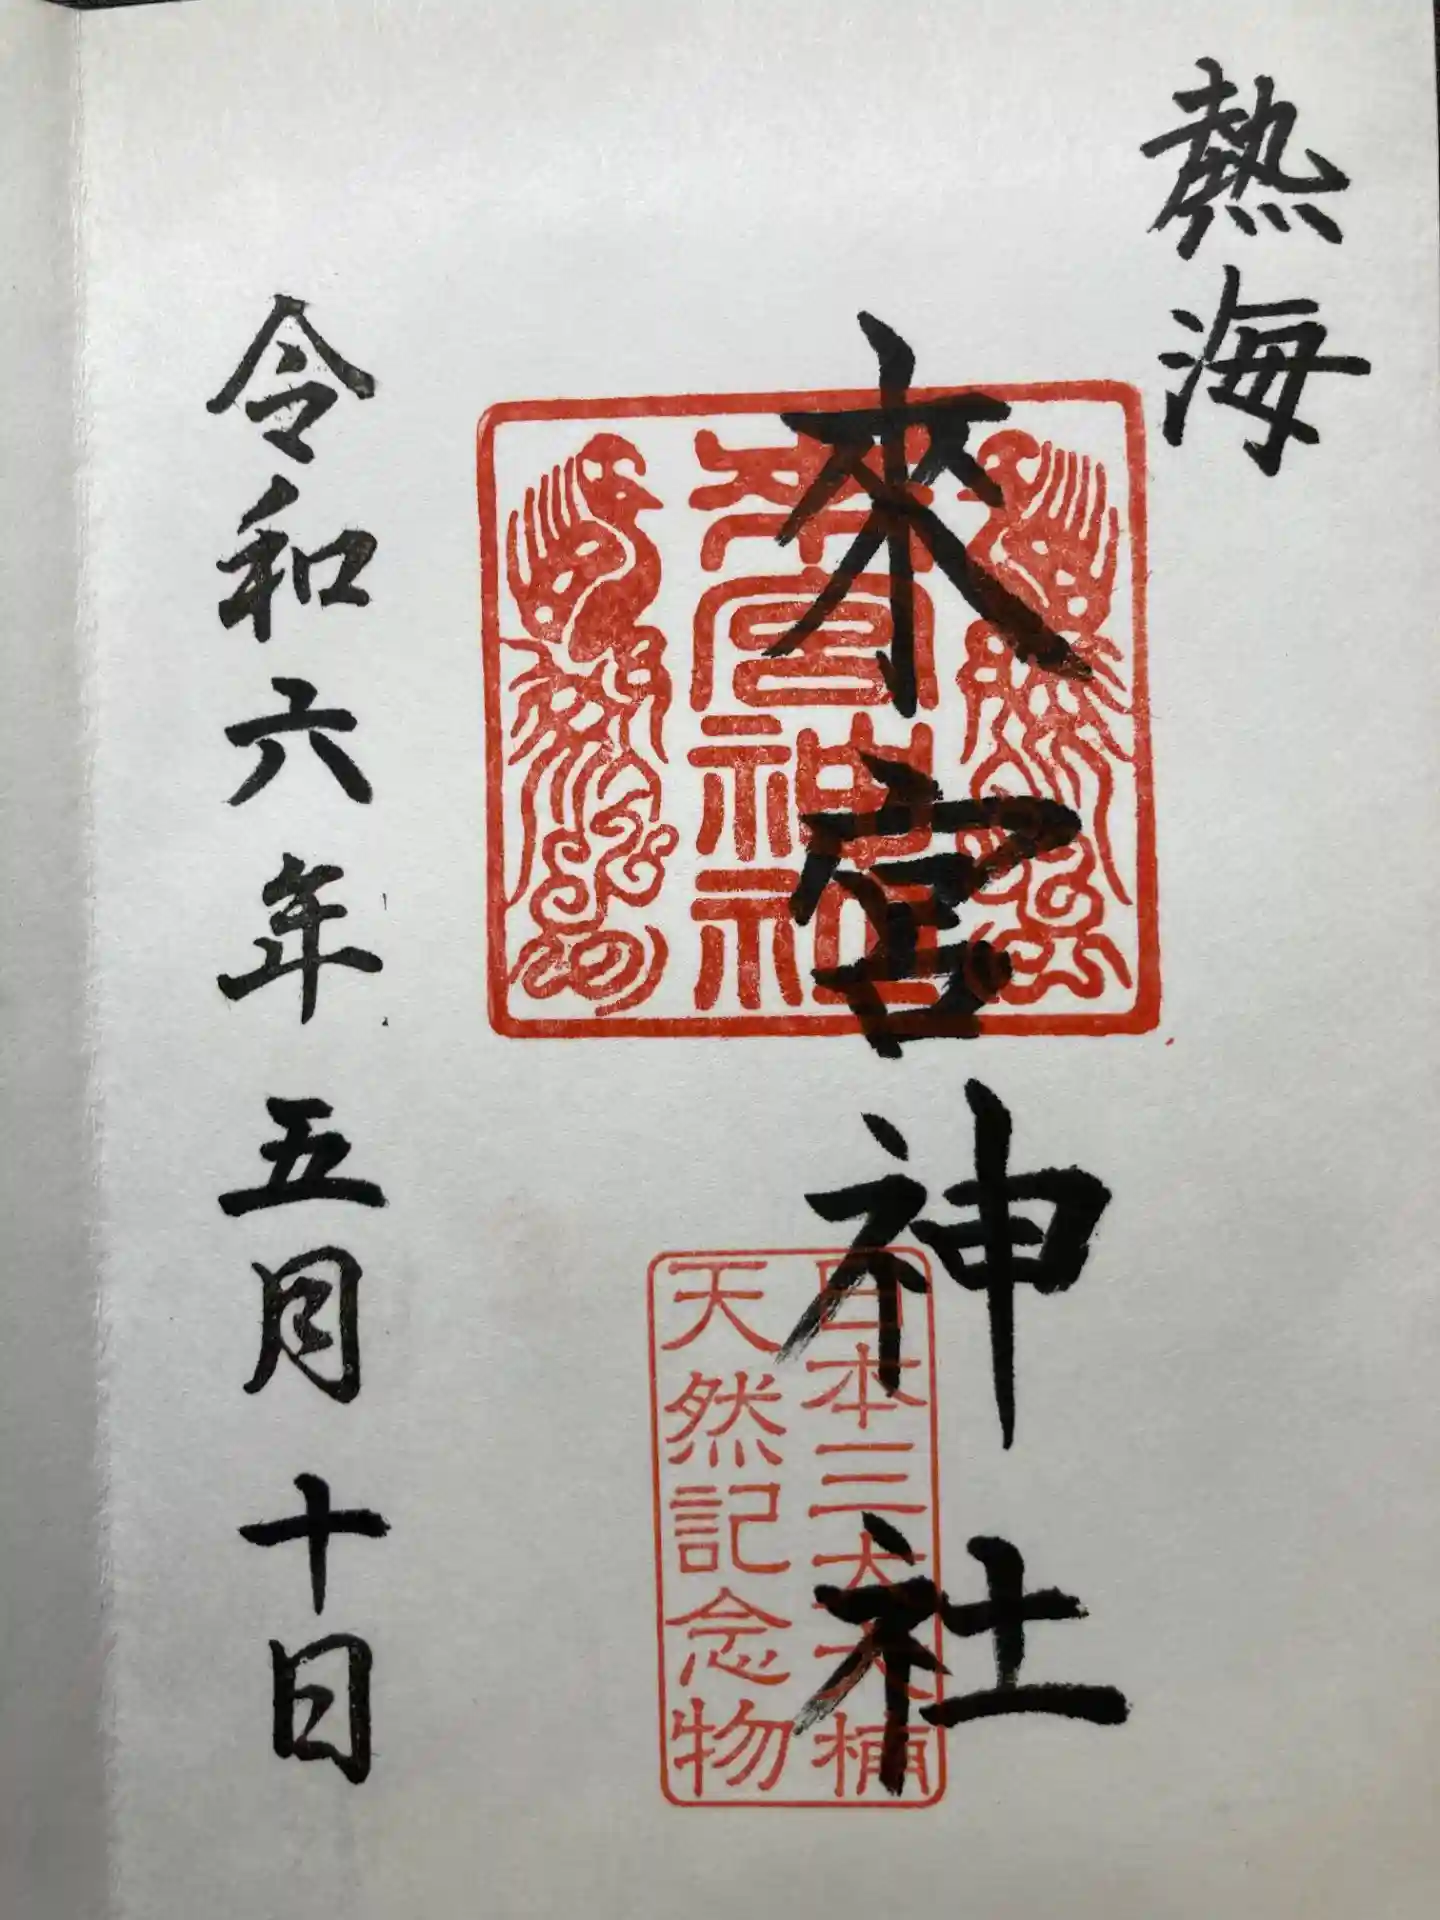 熱海
來宮神社
來宮神社
日本三大大楠
天然記念物
令和六年五月十日